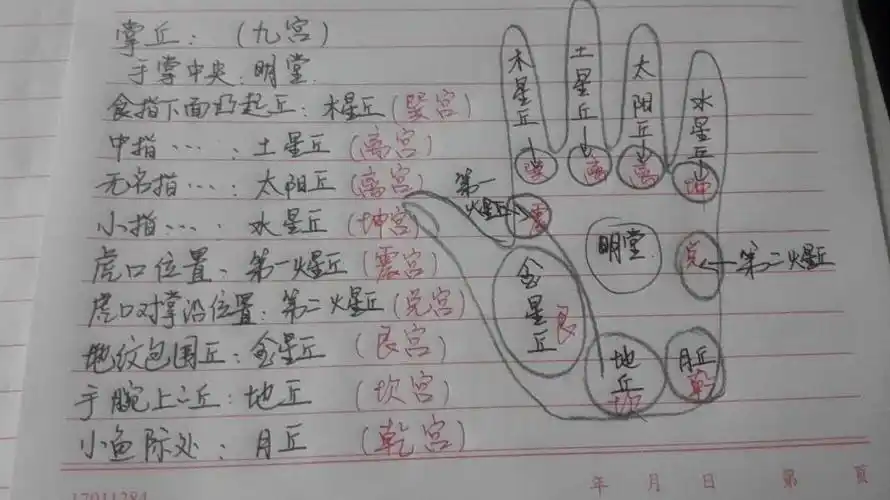 掌丘：（九宫）
手掌中央：明堂.
食指下面凸起丘：木星丘（巽宫）
中指…：土星丘（离宫）
无名指…：太阳丘（离宫）
小指…：水星丘（坤宫）
虎口位置：第一火星丘（震宫）
虎口对掌沿位置：第二火星丘（兑宫）
包围丘：金星丘（艮宫）
手腕上之丘：地丘（坎宫）
小鱼际处：月丘（乾宫）
木星丘
巽
土星丘
离
太阳丘
离
水星丘
坤
第一火星丘
震
明堂
兑
第二火星丘
金星丘
艮
地丘
坎
月丘
乾
年 月 日 第 页